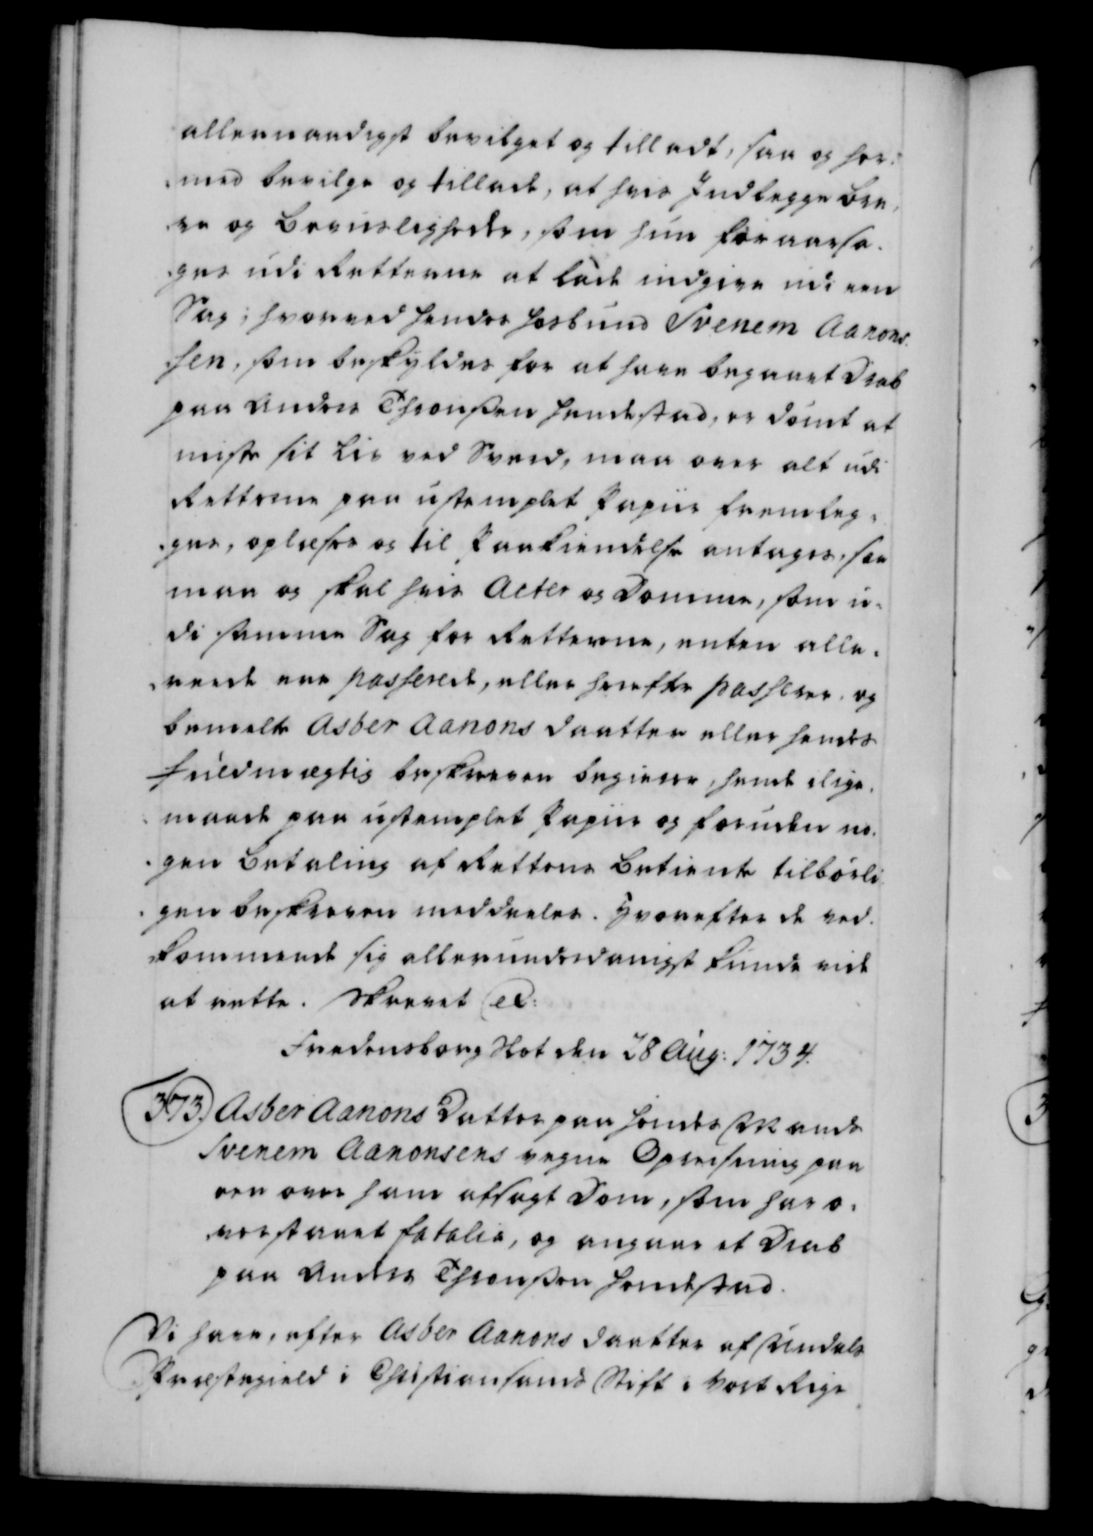 allernaadigst bevilget og tilladt, saa og her-
med bevilge og tillade, at hvis Indlegge Bre-
ve og Beviisligheder, som hun foraarsa-
ges udi Retterne at lade indgive udi een
Sag, hvorved hendes Hosbund Svenem Aanons-
sen, som beskyldes for at have begaaet Drab
paa Anders Thronssen Hendestad, er dømt at
miste sit Liv ved Sverd, maa over alt udi
Retterne paa ustemplet Papiir fremleg-
ges, oplæses og til Paakiendelse antages, saa
maa og skal hvis Acter og Domme, som u-
di samme Sag for Retterne, enten alle-
reede ere passerede, eller herefter passerer og
bemelte Asber Aanons Daatter eller hendes
Fuldmægtig beskreven begierer, hende i lige-
maade paa ustemplet Papiir og foruden no-
gen Betaling af Rettens Betiente tilbørli-
gen beskreven meddeeles. Hvorefter de ved-
kommende sig allerunderdanigst kunde vide
at rette. Skrevet etc:
Fredensborg Slot den 28 Aug: 1734.
373. Asber Aanons Datter paa hendes Mands
Svenem Aanonsens vegne Opreisning paa
een over ham afsagt Dom, som har o-
verstaaet fatalia, og angaar et Drab
paa Anders Thronssen Hendestad.
Vi have, efter Asber Aanons Daatter af Undals
Præstegield i Christiansands Stift i Vort Rige